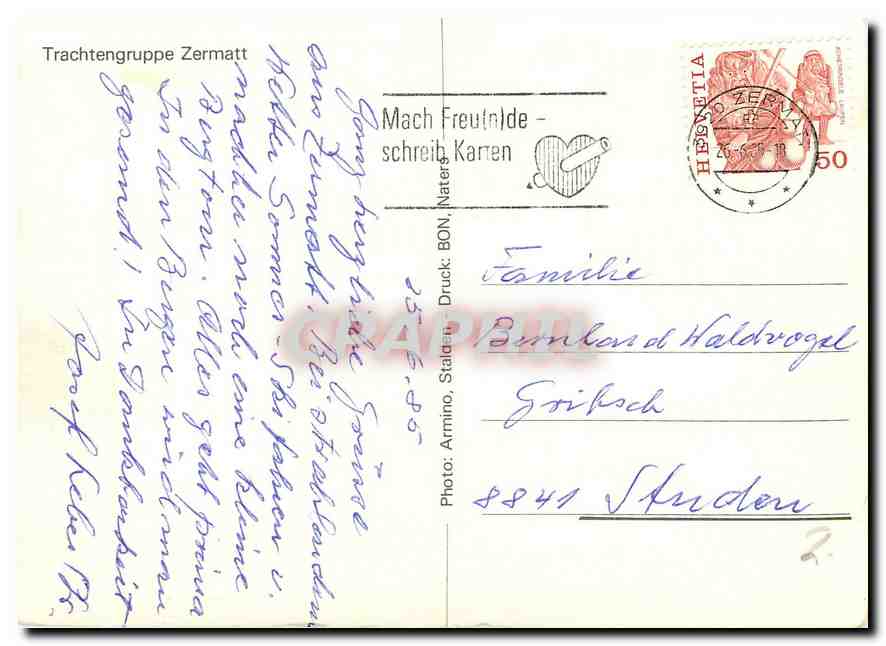 Trachtengruppe Zermatt
Mach Freu(n)de –
schreib Karten
3920 ZERMATT
26.-6.85-18
HELVETIA
ACHETRINGELE LAUPEN
50
25.6.85
Ganz herzliche Grüsse
aus Zermatt. Bei strahlendem
Wetter Sommer-Skifahren u.
nachher noch eine kleine
Bergtour. Alles geht prima
In den Bergen wird man
gesund! In Dankbarkeit
Josef
Photo: Armino, Stalden - Druck: BON, Naters
Familie
Bernhard Waldvogel
Gribsch
8841 Studen
2.
CPAPHIL